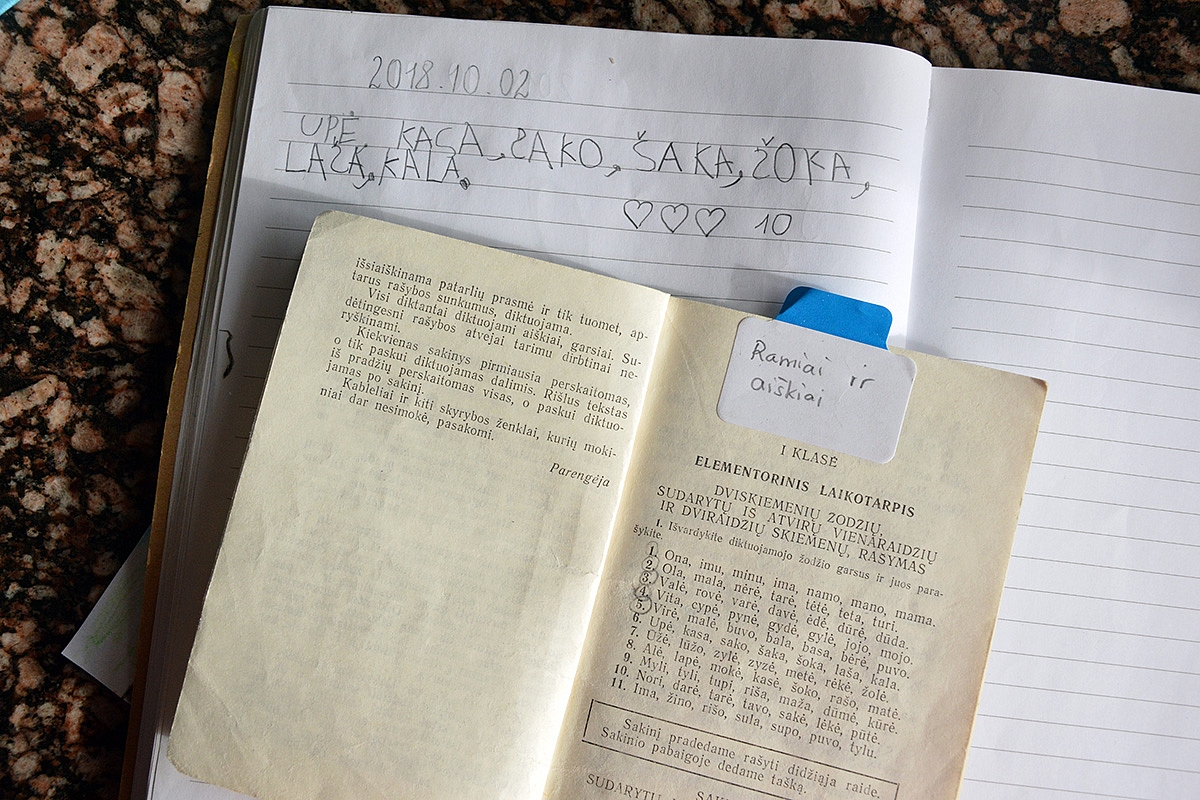 2018.10.02
UPĖ, KASA, SAKO, ŠAKA, ŠOKA,
LAŠA, KALA.
♡♡♡ 10
išsiaiškinama patarlių prasmė ir tik tuomet, ap-
tarus rašybos sunkumus, diktuojama.
Visi diktantai diktuojami aiškiai, garsiai. Su-
dėtingesni rašybos atvejai tarimu dirbtinai ne-
ryškinami.
Kiekvienas sakinys pirmiausia perskaitomas,
o tik paskui diktuojamas dalimis. Rišlus tekstas
iš pradžių perskaitomas visas, o paskui diktuo-
jamas po sakinį.
Kableliai ir kiti skyrybos ženklai, kurių moki-
niai dar nesimokė, pasakomi.
Parengėja
Ramiai ir
aiškiai
I KLASĖ
ELEMENTORINIS LAIKOTARPIS
DVISKIEMENIŲ ŽODŽIŲ,
SUDARYTŲ IŠ ATVIRŲ VIENARAIDŽIŲ
IR DVIRAIDŽIŲ SKIEMENŲ, RAŠYMAS
I. Išvardykite diktuojamojo žodžio garsus ir juos para-
šykite.
1. Ona, imu, minu, ima, namo, mano, mama.
2. Ola, mala, nėrė, tarė, tėtė, teta, turi.
3. Valė, rovė, varė, davė, ėdė, dūrė, dūda.
4. Vita, cypė, pynė, gydė, gylė, jojo, mojo.
5. Virė, malė, buvo, bala, basa, bėrė, puvo.
6. Upė, kasa, sako, šaka, šoka, laša, kala.
7. Ūžė, lūžo, zylė, zyzė, metė, rėkė, žolė.
8. Alė, lapė, mokė, kasė, šoko, rašo, matė.
9. Myli, tyli, tupi, riša, maža, dūmė, kūrė.
10. Nori, darė, tarė, tavo, sakė, lėkė, pūtė.
11. Ima, žino, rišo, sula, supo, puvo, tylu.
Sakinį pradedame rašyti didžiąja raide.
Sakinio pabaigoje dedame tašką.